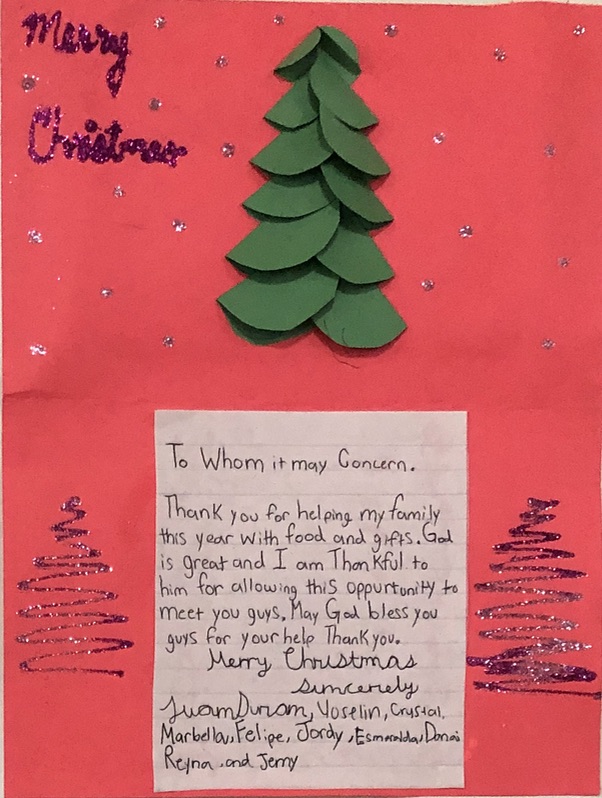 Merry
Christmas
To Whom it may Concern.
Thank you for helping my family
this year with food and gifts. God
is great and I am Thankful to
him for allowing this oppurtunity to
meet you guys. May God bless you
guys for your help Thank you.
Merry Christmas
Sincerely
Juam Duram, Yoselin, Crystal,
Marbella, Felipe, Jordy, Esmeralda, Donai
Reyna, and Jerny